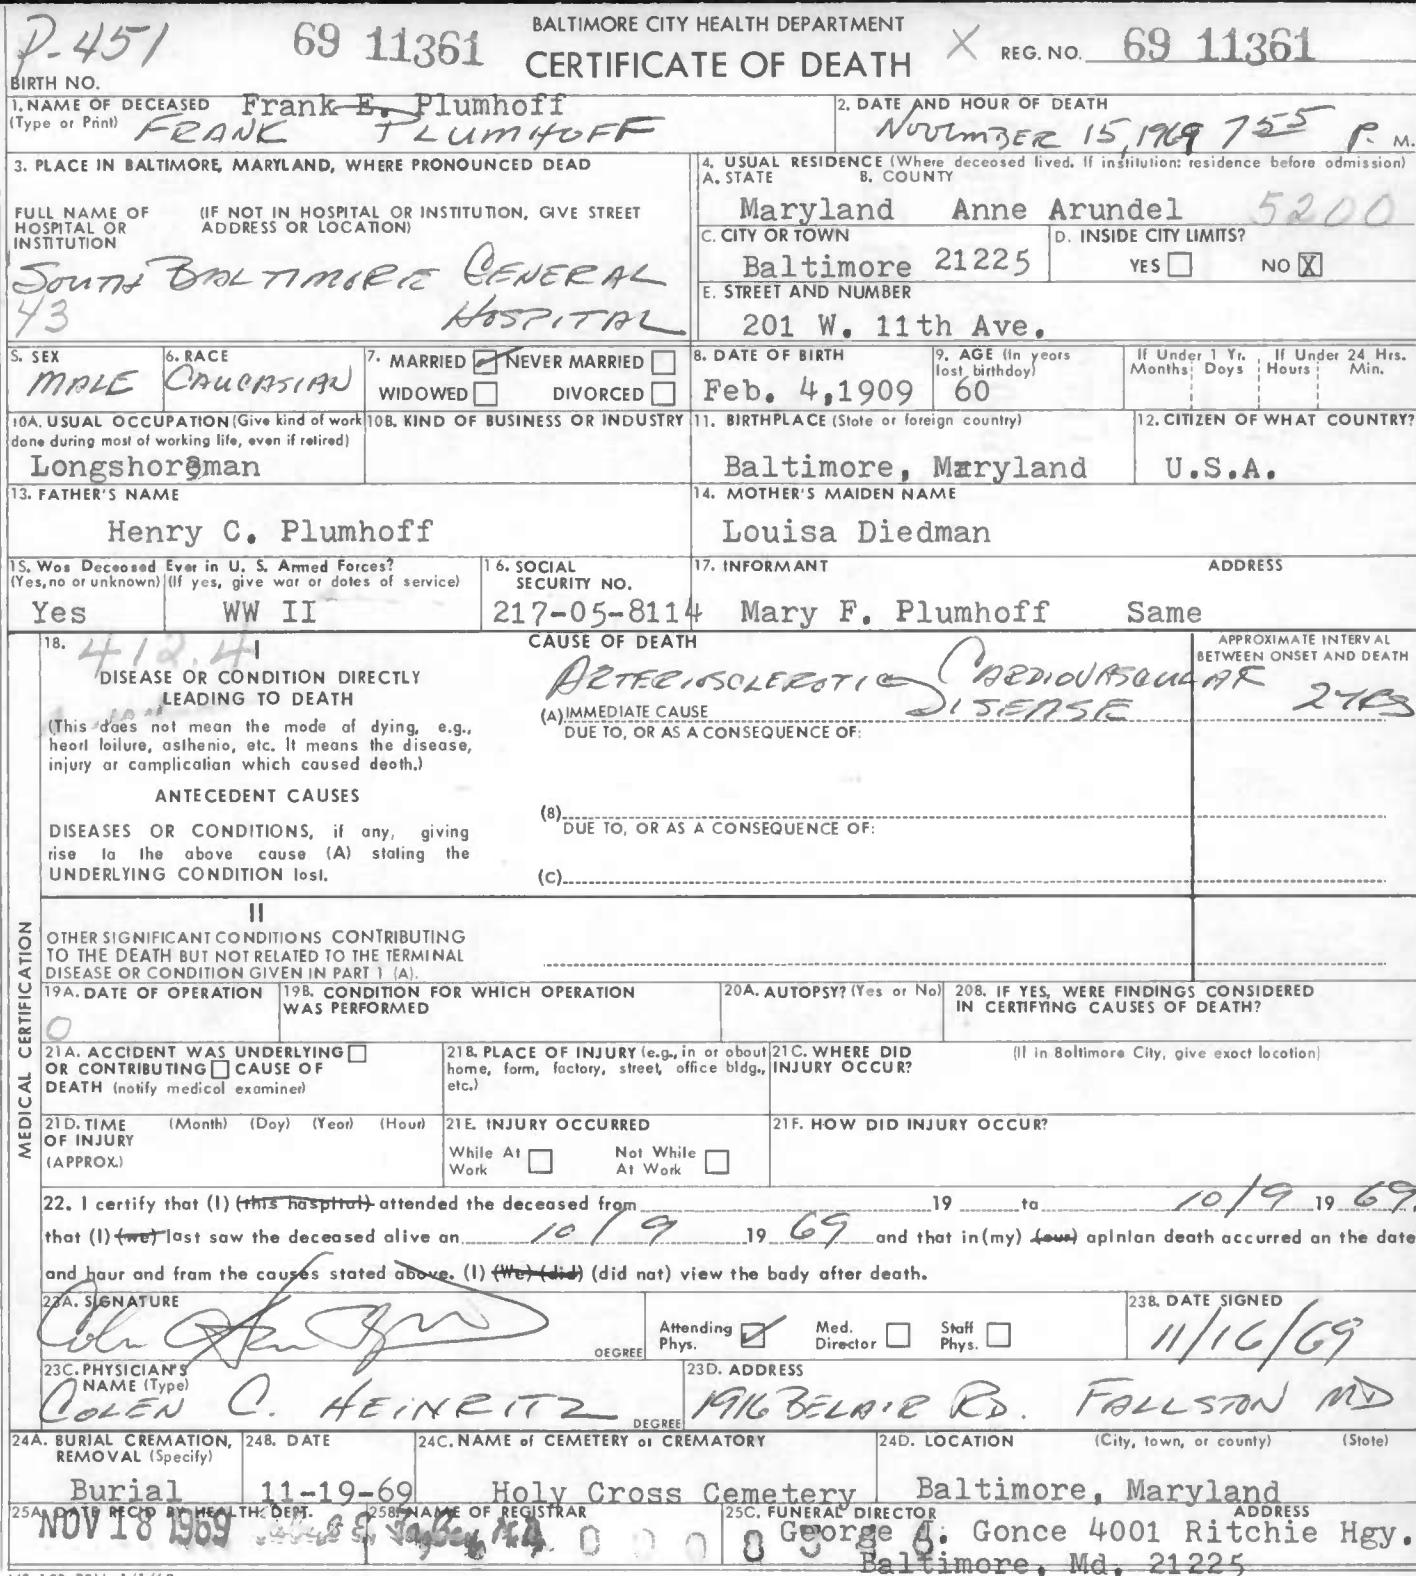 BALTIMORE CITY HEALTH DEPARTMENT
P-451 69 11361 CERTIFICATE OF DEATH X REG. NO. 69 11361
BIRTH NO.
1. NAME OF DECEASED Frank E. Plumhoff
(Type or Print) FRANK PLUMHOFF
2. DATE AND HOUR OF DEATH
NOVEMBER 15, 1969 755 P. M.
3. PLACE IN BALTIMORE, MARYLAND, WHERE PRONOUNCED DEAD
FULL NAME OF HOSPITAL OR INSTITUTION
(IF NOT IN HOSPITAL OR INSTITUTION, GIVE STREET ADDRESS OR LOCATION)
SOUTH BALTIMORE GENERAL
43 HOSPITAL
4. USUAL RESIDENCE (Where deceased lived. If institution: residence before admission)
A. STATE B. COUNTY
Maryland Anne Arundel 5200
C. CITY OR TOWN
Baltimore 21225
D. INSIDE CITY LIMITS?
YES NO X
E. STREET AND NUMBER
201 W. 11th Ave.
5. SEX
MALE
6. RACE
CAUCASIAN
7. MARRIED NEVER MARRIED
WIDOWED DIVORCED
8. DATE OF BIRTH
Feb. 4,1909
9. AGE (In years last birthday)
60
If Under 1 Yr. If Under 24 Hrs.
Months Days Hours Min.
10A. USUAL OCCUPATION (Give kind of work
done during most of working life, even if retired)
Longshoreman
10B. KIND OF BUSINESS OR INDUSTRY
11. BIRTHPLACE (State or foreign country)
Baltimore, Maryland
12. CITIZEN OF WHAT COUNTRY?
U.S.A.
13. FATHER'S NAME
Henry C. Plumhoff
14. MOTHER'S MAIDEN NAME
Louisa Diedman
15. Was Deceased Ever in U. S. Armed Forces?
(Yes, no or unknown) (If yes, give war or dates of service)
Yes WW II
16. SOCIAL SECURITY NO.
217-05-8114
17. INFORMANT ADDRESS
Mary F. Plumhoff Same
MEDICAL CERTIFICATION
18. 412.4 I
DISEASE OR CONDITION DIRECTLY
LEADING TO DEATH
(This does not mean the mode of dying, e.g.,
heart failure, asthenia, etc. It means the disease,
injury or complication which caused death.)
ANTECEDENT CAUSES
DISEASES OR CONDITIONS, if any, giving
rise to the above cause (A) stating the
UNDERLYING CONDITION last.
CAUSE OF DEATH
ARTERIOSCLEROTIC CARDIOVASCULAR
(A) IMMEDIATE CAUSE DISEASE
DUE TO, OR AS A CONSEQUENCE OF:
(B)
DUE TO, OR AS A CONSEQUENCE OF:
(C)
APPROXIMATE INTERVAL
BETWEEN ONSET AND DEATH
2 YRS
II
OTHER SIGNIFICANT CONDITIONS CONTRIBUTING
TO THE DEATH BUT NOT RELATED TO THE TERMINAL
DISEASE OR CONDITION GIVEN IN PART 1 (A).
19A. DATE OF OPERATION
0
19B. CONDITION FOR WHICH OPERATION
WAS PERFORMED
20A. AUTOPSY? (Yes or No)
20B. IF YES, WERE FINDINGS CONSIDERED
IN CERTIFYING CAUSES OF DEATH?
21A. ACCIDENT WAS UNDERLYING
OR CONTRIBUTING CAUSE OF
DEATH (notify medical examiner)
21B. PLACE OF INJURY (e.g., in or about
home, farm, factory, street, office bldg.,
etc.)
21C. WHERE DID (If in Baltimore City, give exact location)
INJURY OCCUR?
21D. TIME (Month) (Day) (Year) (Hour)
OF INJURY
(APPROX.)
21E. INJURY OCCURRED
While At Work Not While At Work
21F. HOW DID INJURY OCCUR?
22. I certify that (I) (this hospital) attended the deceased from 19 to 10/9 19 69,
that (I) (we) last saw the deceased alive on 10/9 19 69 and that in (my) (our) opinion death occurred on the date
and hour and from the causes stated above. (I) (We) (did) (did not) view the body after death.
23A. SIGNATURE
DEGREE
Attending Phys. Med. Director Staff Phys.
23B. DATE SIGNED
11/16/69
23C. PHYSICIAN'S NAME (Type)
COLEN C. HEINRITZ DEGREE
23D. ADDRESS
1916 BELAIR RD. FALLSTON MD
24A. BURIAL CREMATION, REMOVAL (Specify)
Burial
24B. DATE
11-19-69
24C. NAME of CEMETERY or CREMATORY
Holy Cross Cemetery
24D. LOCATION (City, town, or county) (State)
Baltimore, Maryland
25A. DATE REC'D BY HEALTH DEPT.
NOV 18 1969
25B. NAME OF REGISTRAR
25C. FUNERAL DIRECTOR ADDRESS
George J. Gonce 4001 Ritchie Hgy.
Baltimore, Md. 21225